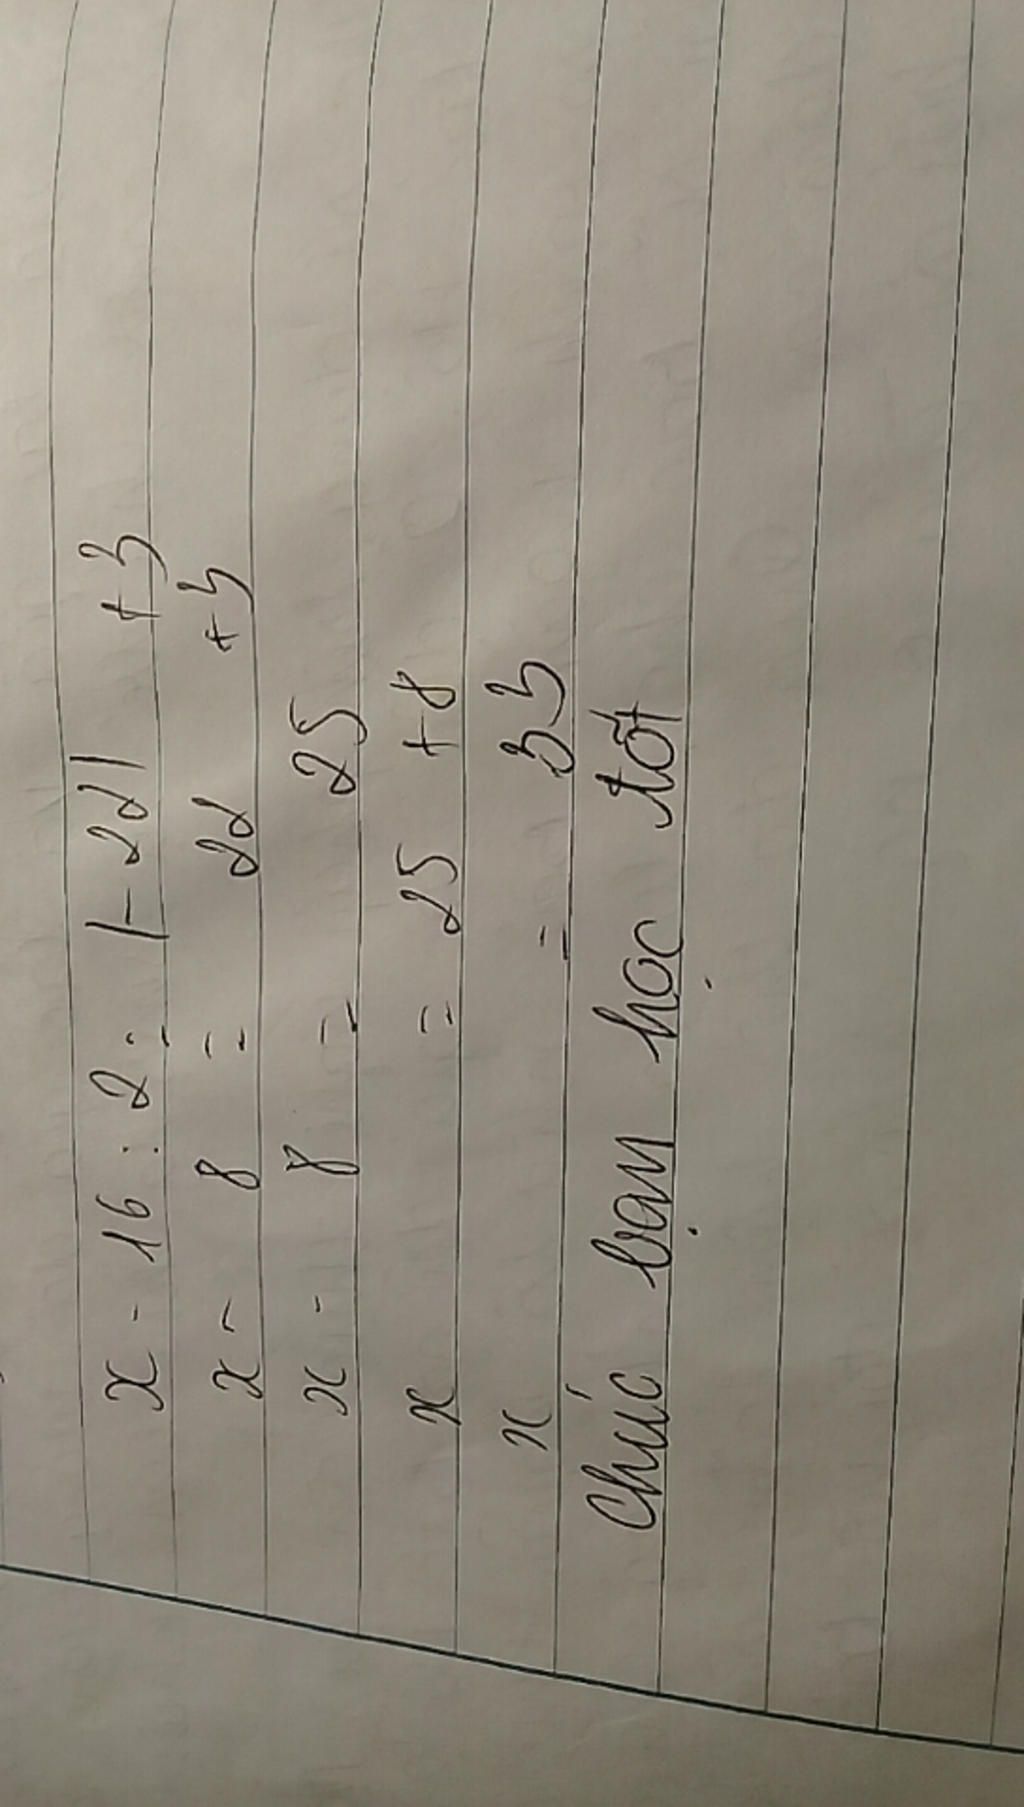 x - 16 : 2 = |-22| + 3
x - 8 = 22 + 3
x - 8 = 25
x = 25 + 8
x = 33
Chúc bạn học tốt